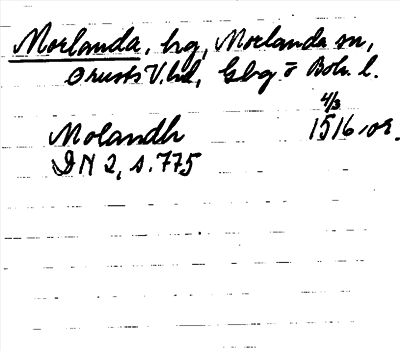 Morlanda, hrg, Morlanda sn,
Orusts V. hd, Gbg o Boh. l.
4/3
Molandh 1516 or.
DN 2, s. 775